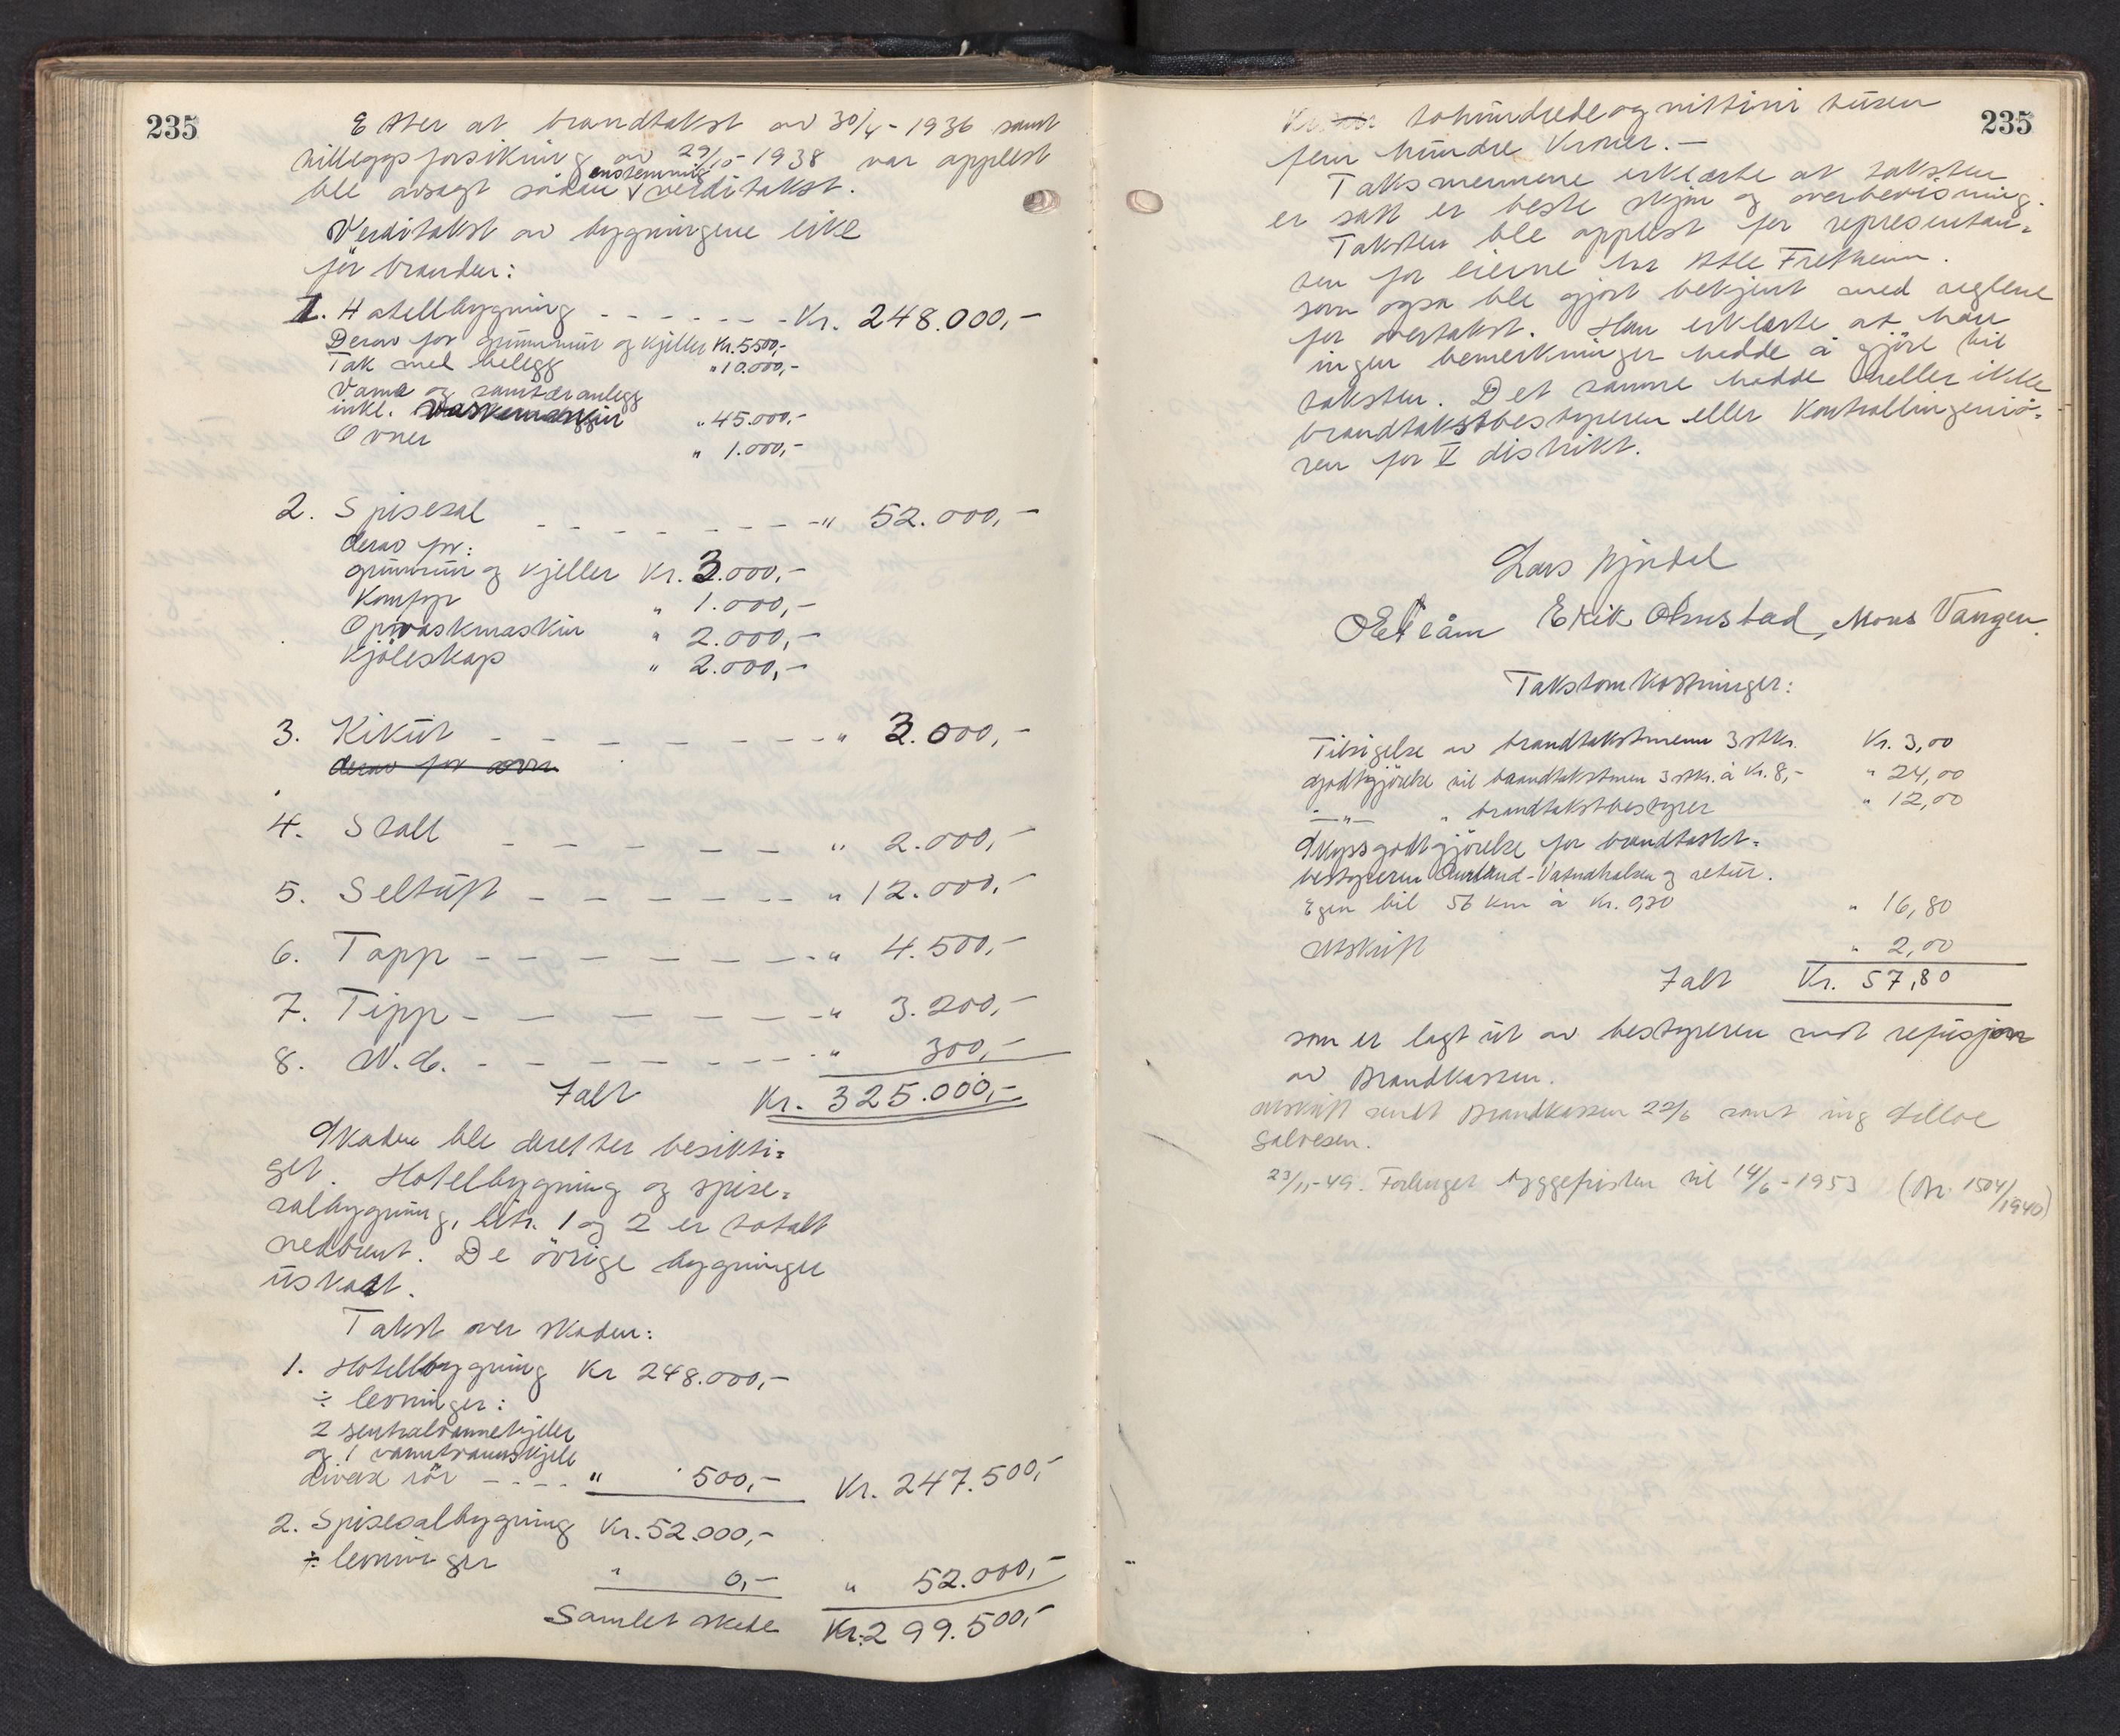 235
Etter at brandtakst av 30/4-1936 samt
tilleggsforsikring av 29/10-1938 var opplest
ble avsagt sådan enstemmig verditakst.
Verditakst av bygningene like
før branden:
1. Hotellbygning - - - - - - Kr. 248.000,-
Derav for grunnmur og kjeller Kr. 5500,-
Tak med belegg " 10.000,-
Vann og sanitæranlegg
inkl. vaskemaskin " 45.000,-
Ovner " 1.000,-
2. Spisesal - - - - - - - - " 52.000,-
derav for:
grunnmur og kjeller Kr. 3.000,-
Komfyr " 1.000,-
Opvaskmaskin " 2.000,-
Kjøleskap " 2.000,-
3. Kikut - - - - - - - - " 3.000,-
derav for ovn
4. Stall - - - - - - " 2.000,-
5. Seltuft - - - - - - " 12.000,-
6. Topp - - - - - - - " 4.500,-
7. Tipp - - - - - - - " 3.200,-
8. W.C. - - - - - - - " 300,-
Ialt Kr. 325.000,-
Skaden ble deretter besikti=
get. Hotelbygning og spise=
salbygning, litr. 1 og 2 er totalt
nedbrent. De övrige bygninger
uskadt.
Takst over skaden:
1. Hotellbygning Kr 248.000,-
÷ levninger:
2 sentralvarmekjeler
og 1 varmtvannskjele
diverse rör - - - - " 500,- Kr. 247.500,-
2. Spisesalbygning Kr. 52.000,-
÷ levninger " 0,- " 52.000,-
Samlet skade Kr. 299.500,-
235
tohundredeognittini tusen
fem hundre Kroner.-
Taksmennene erklærte at taksten
er satt er beste skjön og overbevisning.
Taksten ble opplest for representan=
ten for eierne hr Atle Fretheim.
som også ble gjort bekjent med reglene
for overtakst. Han erklærte at han
ingen bemerkninger hadde å gjöre til
taksten. Det samme hadde heller ikke
brandtakstbestyreren eller Kontrollingeniö=
ren for V distrikt.
Lars Njødel
Erik Ohnstad, Mons Vangen.
Takstomkostninger:
Tilsigelse av brandtakstmenn 3 stkr. Kr. 3,00
godtgjörelse til brandtakstmen 3 stkr. à Kr. 8,- " 24,00
-"- " brandtakstbestyrer " 12,00
Skyssgodtgjörelse for brandtakst=
bestyreren Aurland-Vatnahalsen og retur.
Egen bil 56 km à Kr. 0,30 " 16,80
Utskrift " 2,00
Ialt Kr. 57,80
som er lagt ut av bestyreren mot refusjon
av Brandkassen.
Utskrift sendt Brandkassen 22/6 samt ing
Salvesen.
23/11-49. Forlenget byggefristen til 14/6-1953 (Br. 1504/1940)